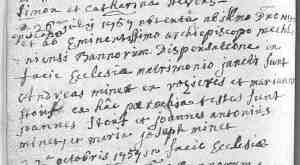 simon et catharina
1759 obtenta ab illmo
et ab Eminentissimo archiepiscopo mechli
niensi Bannorum Dispensatione in
facie Ecclesiæ matrimonio juncti sunt
Andreas minet ex rosieres et marianna
stouf ex hac parochia testes sunt
joannes stouf et joannes antonius
minet, et maria joseph minet
octobris 1759 in facie Ecclesiæ